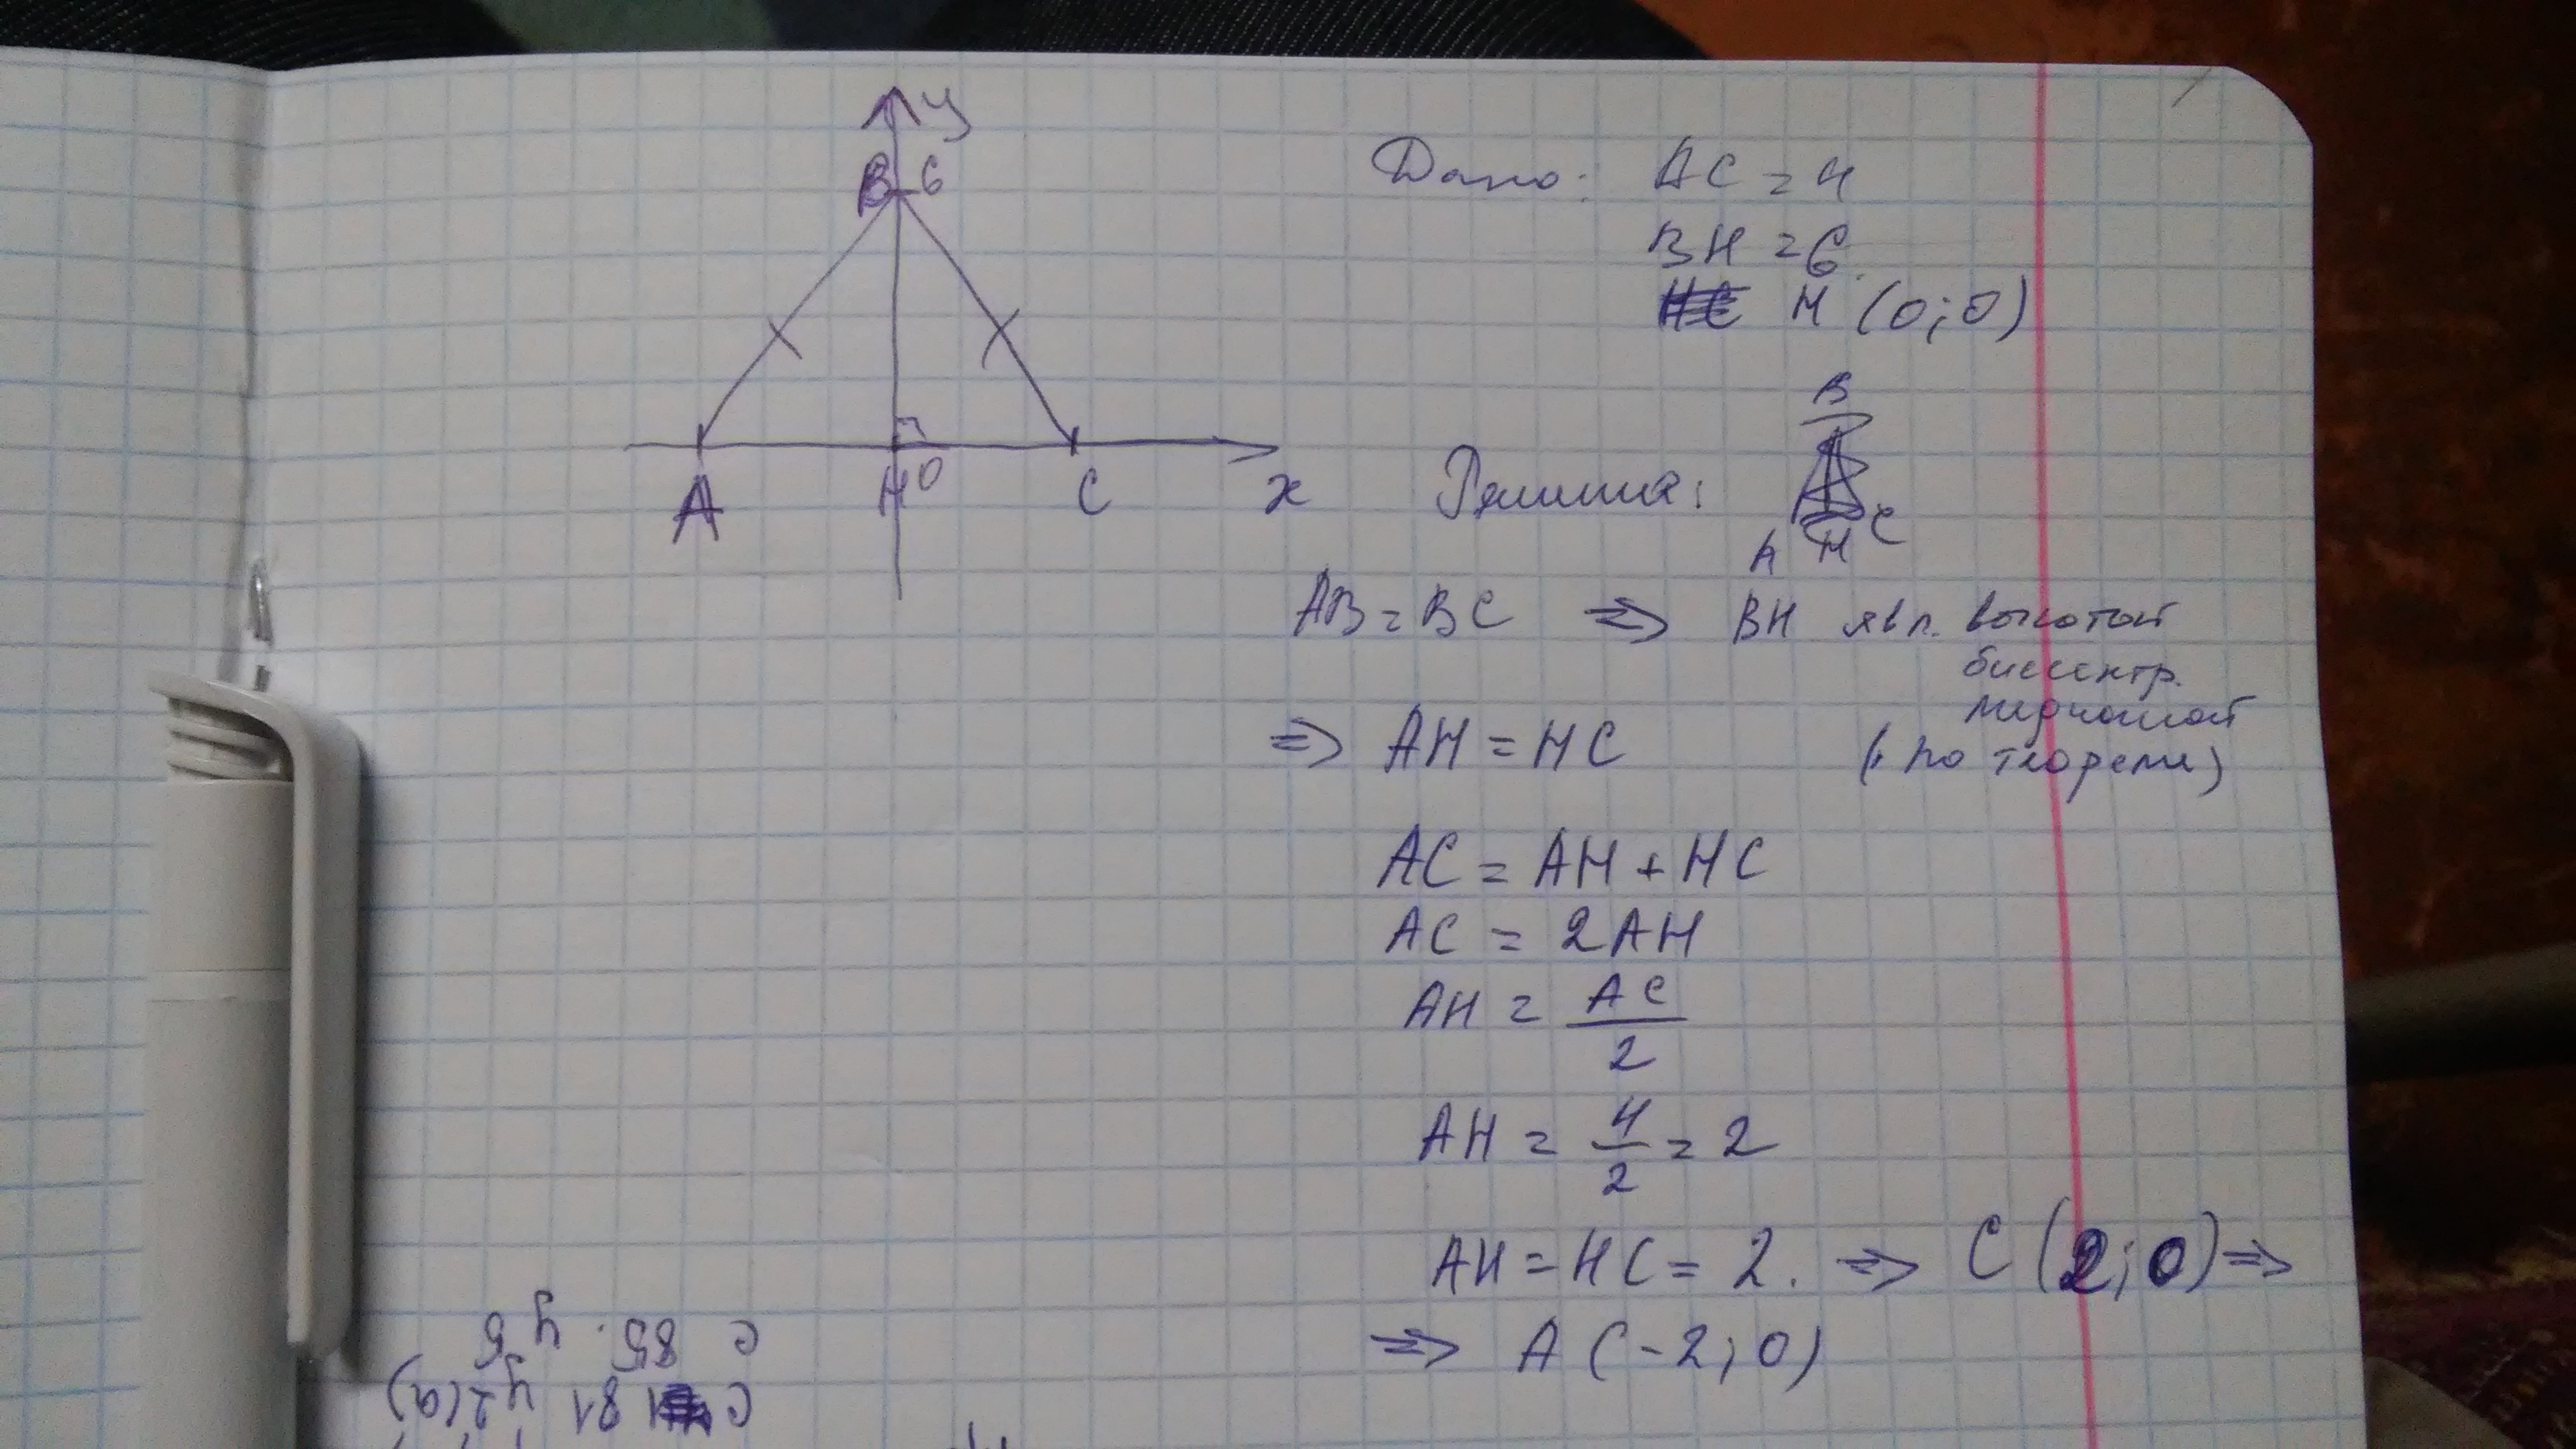 у
B 6
A H 0 C x
Дано: AC = 4
BH = 6
H (0; 0)
B
Решения:
A H C
AB = BC ⇒ BH явл. высотой
биссектр.
медианой
⇒ AH = HC (по теореме)
AC = AH + HC
AC = 2AH
AH = AC
2
AH = 4/2 = 2
AH = HC = 2. ⇒ C (2; 0) ⇒
⇒ A (-2; 0)
с 85. ч 5
с 81 ч 2(а)